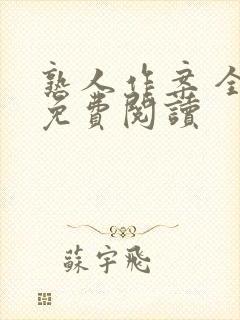 熟人作案全
免費閱讀
蘇宇飛